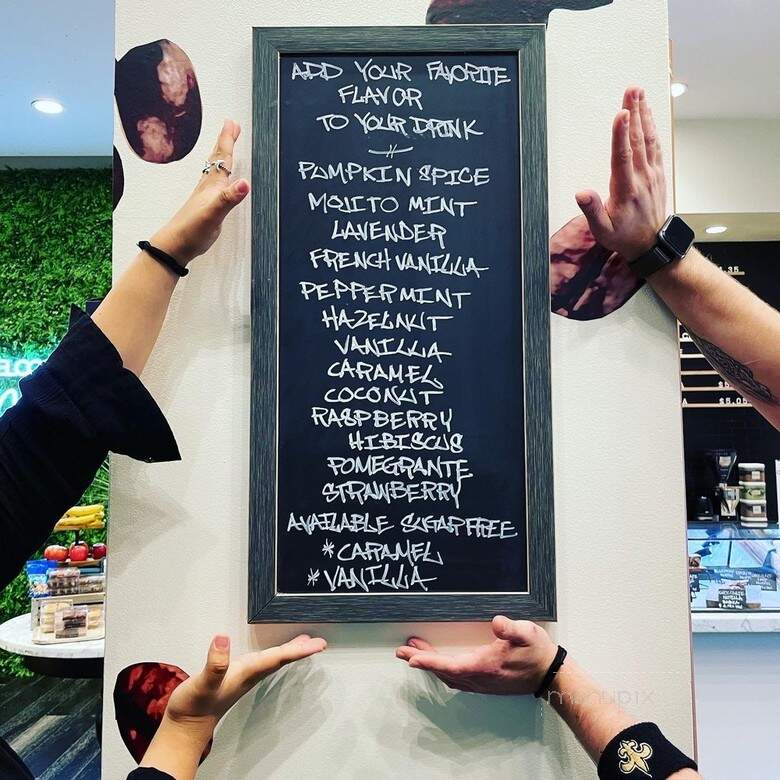 ADD YOUR FAVORITE
FLAVOR
TO YOUR DRINK
PUMPKIN SPICE
MOJITO MINT
LAVENDER
FRENCH VANILLA
PEPPERMINT
HAZELNUT
VANILLA
CARAMEL
COCONUT
RASPBERRY
HIBISCUS
POMEGRANTE
STRAWBERRY
AVAILABLE SUGAR FREE
*CARAMEL
*VANILLA
menupix